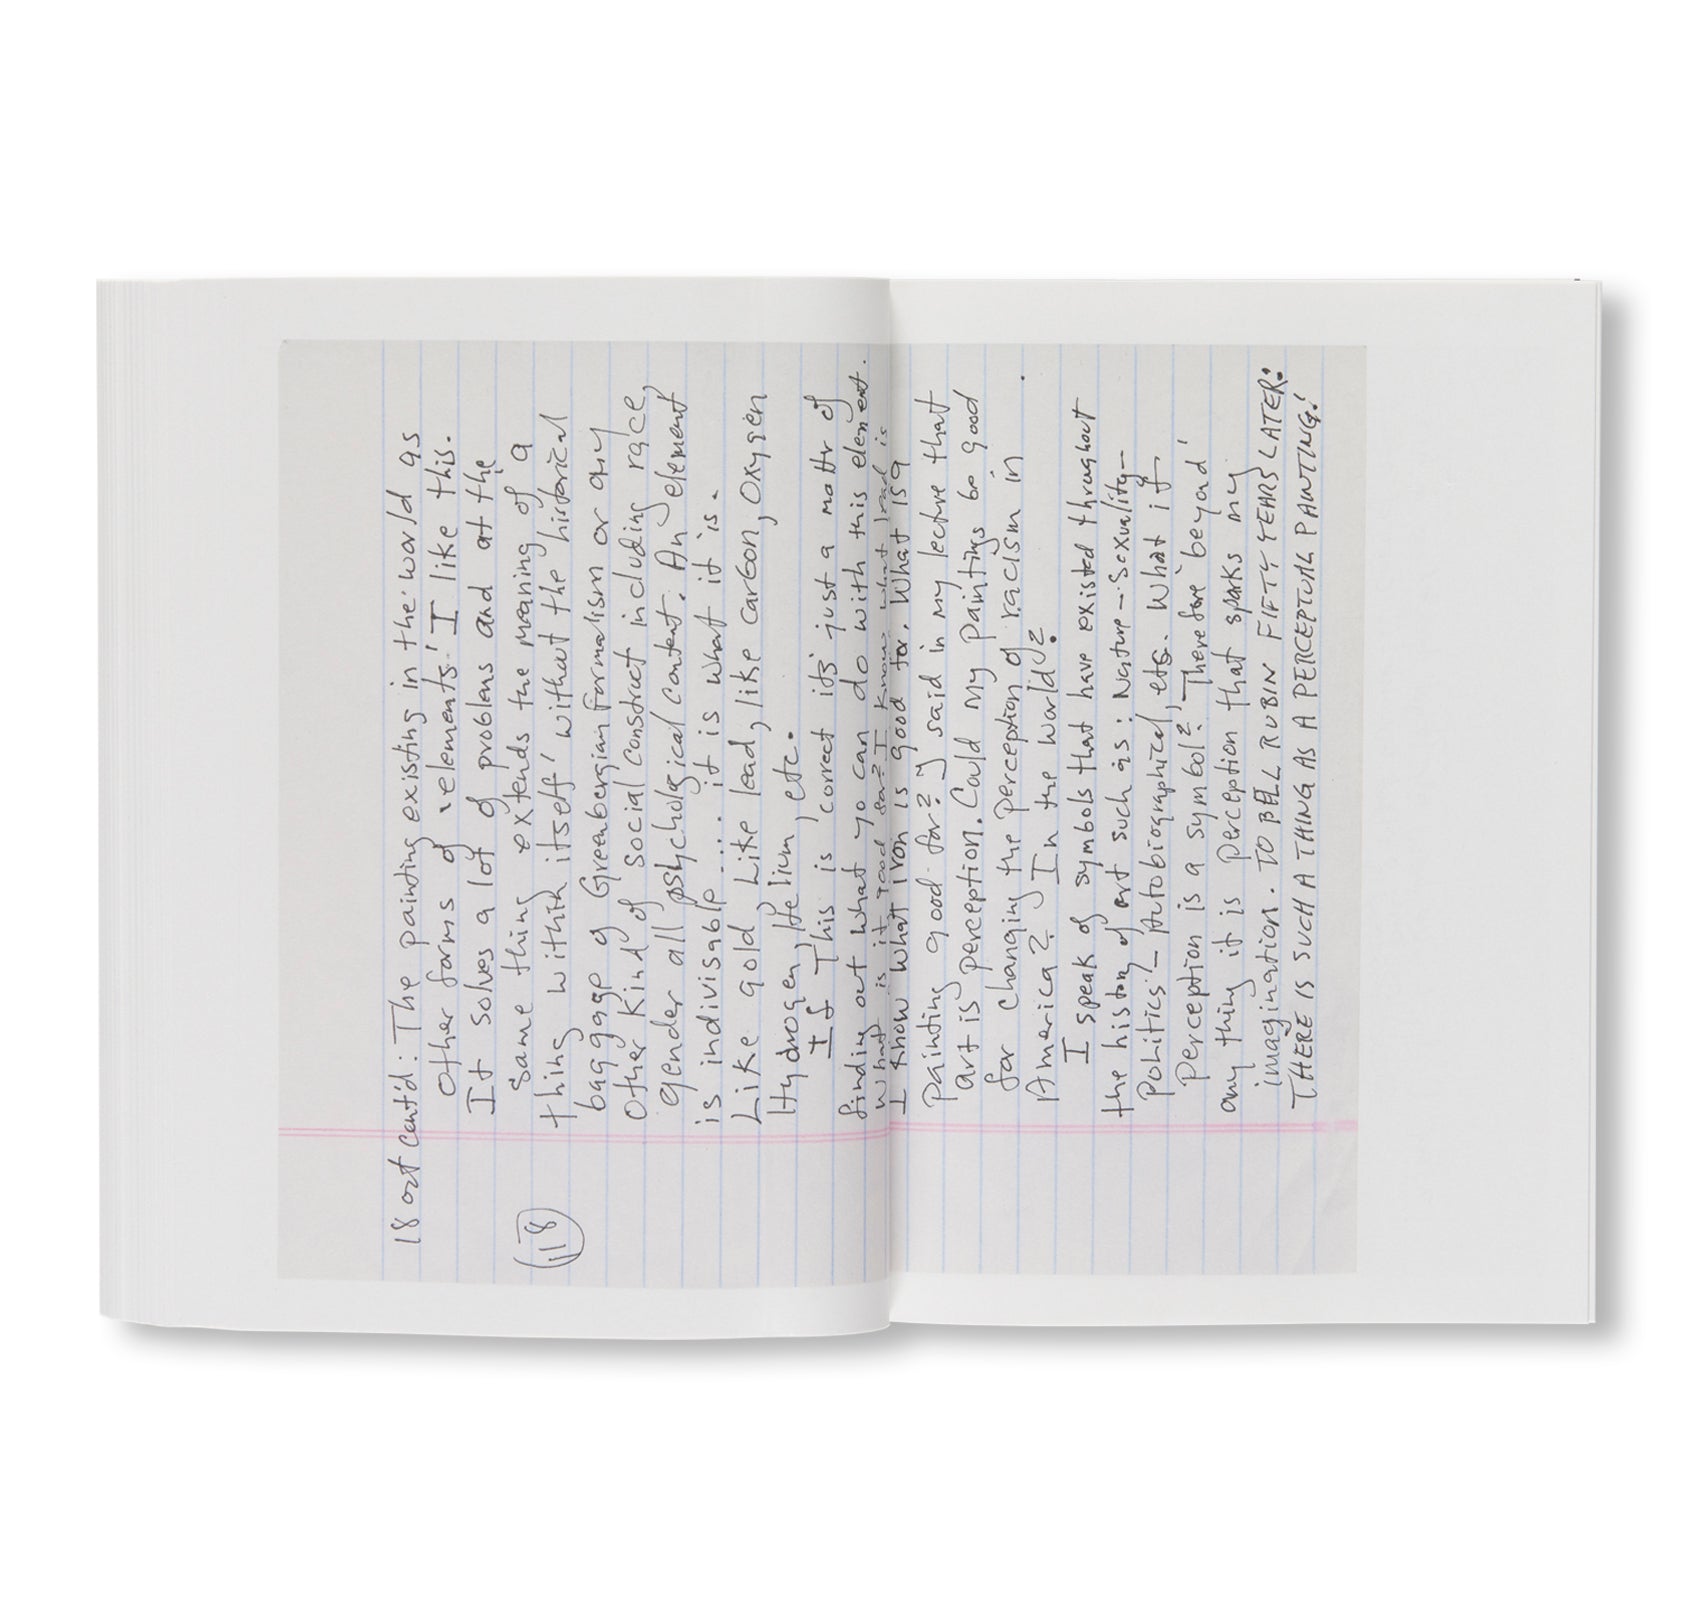 18 oct cont'd: The painting existing in the world as
other forms of 'elements.' I like this.
It solves a lot of problems and at the
same thing extends the meaning of a
thing within itself' without the historical
baggage of Greenbergian formalism or any
other kind of social construct including race,
gender all psychological content. An element
is indivisable.... it is what it is.
Like gold, Like lead, like carbon, oxygen
Hydrogen, Helium, etc.
If This is correct its just a mattr of
finding out what yo can do with this element.
What is it good for? I know what lead is
I know what iron is good for. What is a
painting good for? I said in my lecture that
art is perception. Could my paintings be good
for changing the perception of racism in
America? In the world?
I speak of symbols that have existed throughout
the history of art such as: Nature - Sexuality -
Politics - Autobiographical, etc. What if
perception is a symbol? Therefore beyond'
any thing it is perception that sparks my
imagination. TO BELL RUBIN FIFTY YEARS LATER:
THERE IS SUCH A THING AS A PERCEPTUAL PAINTING!
118